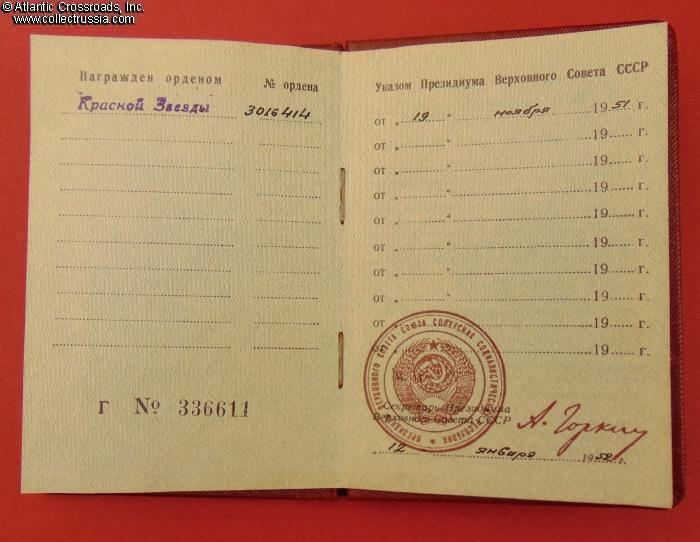 © Atlantic Crossroads, Inc.
www.collectrussia.com
Награжден орденом № ордена
Красной Звезды 3016414
Г № 336611
Указом Президиума Верховного Совета СССР
от „ 19 “ ноября 1951 г.
от „ “ 19 г.
от „ “ 19 г.
от „ “ 19 г.
от „ “ 19 г.
от „ “ 19 г.
от „ “ 19 г.
от „ “ 19 г.
от „ 19 г.
19 г.
ПРЕЗИДИУМ ВЕРХОВНОГО СОВЕТА СОЮЗА СОВЕТСКИХ СОЦИАЛИСТИЧЕСКИХ РЕСПУБЛИК
М.
Секретарь Президиума
Верховного Совета СССР
А. Горкин
12 января 1952 г.